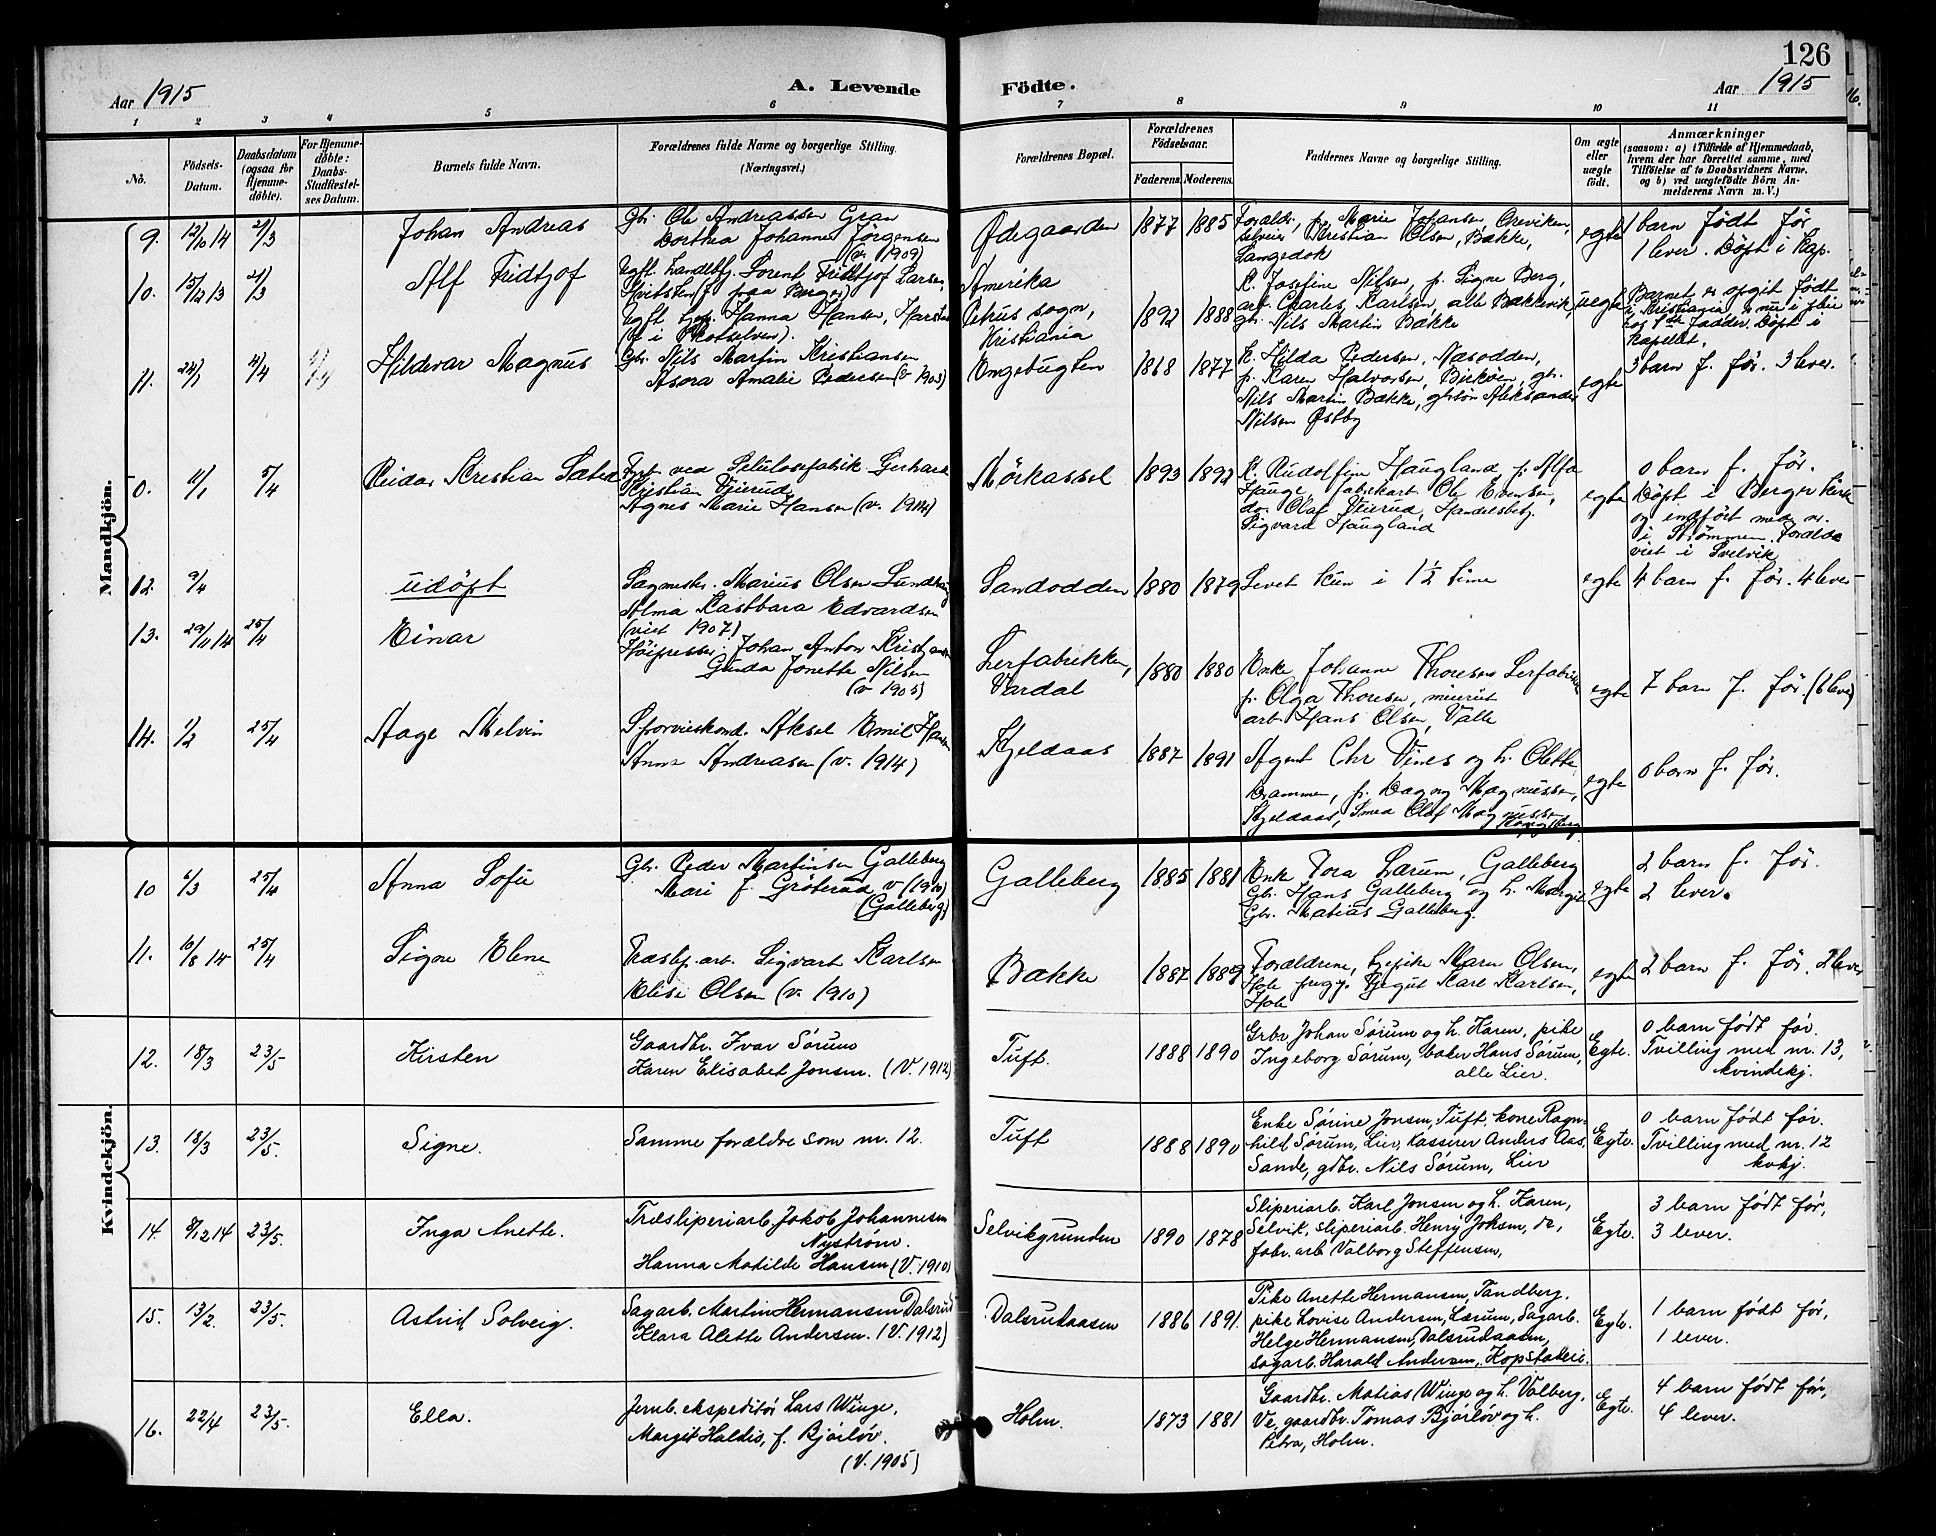 126
Aar 1915
A. Levende
Födte.
Aar 1915
1 2 3 4 5 6 7 8 9 10 11
No.
Födsels-Datum.
Daabsdatum (ogsaa for Hjemmedöbte).
For Hjemmedöbte: Daabs-Stadfæstelses Datum.
Barnets fulde Navn.
Forældrenes fulde Navne og borgerlige Stilling. (Næringsvei.)
Forældrenes Bopæl.
Forældrenes Fødselsaar.
Faderens. Moderens.
Faddernes Navne og borgerlige Stilling.
Om ægte eller uægte födt.
Anmærkninger
(saasom: a) i Tilfælde af Hjemmedaab, hvem der har forrettet samme, med Tilföielse af to Daabsvidners Navne, og b) ved uægtefödte Börn Anmelderens Navn m. V.)
Mandkjön.
9. 12/10 14 2/3 Johan Andreas
Gbr. Ole Andreassen Gran
Dorthea Johanne Jörgensen
(v. 1909)
Ødegaarden 1877 1885
Foræld., p. Marie Johansen, Greviken,
selveier Kristian Olsen, Bække,
Langedok
egte
1 barn født før
1 lever. Døpt i Kap.
10. 15/12 13 2/3 Alf Fridtjof
Ugft. Landlbfj. Lorent Fridtjof Larsen,
Ugft. Hanna Hansen,
Amerika
Petrus sogn,
Kristiania
1892 1888
K. Josefine Nilsen, p. Signe Berg,
arb. Charles Karlsen, alle Bækkevik,
gb. Nils Martin Bække
uegte
Barnet er opgit født
i Kristiania,
Døpt i
Kapellet.
11. 24/1 4/4 Hildevar Magnus
Gbr. Nils Martin Kristiansen
Asora Amalie Pedersen (v. 1903)
Engebugten 1868 1877
K. Hilda Pedersen, Næsodden,
p. Karen Halvorsen, Birköen, gb.
Nils Martin Bække, gbrsön Aleksander
Nilsen Østby
egte
3 barn f. før. 3 lever.
0. 11/1 5/4 Reidar Kristian
ved Selulosefabrik Gerhard
Kristian
Agnes Marie Hansen (v. 1914)
Mörkassel 1893 1892
K. Rudolfine Haugland, p. Alfa
Hauge, fabrikarb. Ole Evensen,
do. Olaf Handelsbetj.
Sigvard Haugland
egte
0 barn f. før.
Døpt i Berger Kirke
og indført med nr.
i Strömmen. Foræld.
viet i Svelvik
12. 9/4 udöpt
Sagmester Marius Olsen
Alma Kastbara Edvardsen
(viet 1907)
Sandodden 1880 1879
Levet kun i 1½ time
egte
4 barn f. før. 4 lever
13. 29/11 14 25/4 Einar
Johan Anton
Gunda Jonette Nilsen
(v. 1905)
Lerfabrikken,
Vardal
1880 1880
Enke Johanne Thoresen Lerfabrikken
p. Olga Thoresen,
arb. Hans Olsen, Valle
egte
7 barn f. før. (6 lever)
14. 1/2 25/4 Aage Melvin
Sporveiskond. Aksel Emil Hansen
Anna Andreasen (v. 1914)
Kjeldaas 1887 1891
Agent Chr Vines og h. Olette
Drammen, p. Dagny Magnussen,
Kjeldaas, Smed Olaf Magnussen
Kongsberg
egte
0 barn f. før.
Kvindekjön.
10 6/3 25/4 Anna Sofie
Gbr. Peder Martinsen Galleberg
Mari f. Gröterud v (1910)
(Galleberg)
Galleberg 1885 1881
Enke Tora Lærum, Galleberg
Gbr. Hans Galleberg og h. Margit
Gbr. Matias Galleberg.
egte
2 barn f. før.
2 lever.
11. 10/8 14 25/4 Signe Elene
Træsbp. arb. Sigvart Karlsen
Elise Olsen (v. 1910)
Bække 1887 1889
Forældrene, tjepike Maren Olsen,
Hole Tjegut Karl Karlsen,
Hole
egte
2 barn f. før. 2 lever
12. 18/3 23/5 Kirsten
Gaardbr. Ivar Sørum
Karen Elisabet Jonsen. (V. 1912)
Tuft. 1888 1890
Grbr Johan Sørum og h. Karen, pike
Ingeborg Sørum, baker Hans Sørum,
alle Lier.
Egte.
0 barn født før.
Tvilling med nr. 13,
kvindekj.
13. 18/3 23/5. Signe.
Samme forældre som nr. 12.
Tuft 1888 1890
Enke Sørine Jonsen, Tuft, kone Ragn-
hild Sørum, Lier, kasserer Anders Aas,
Sande, gdbr. Nils Sørum, Lier
Egte.
0 barn født før.
Tvilling med nr. 12
kvkj.
14. 8/12 14 23/5. Inga Anette.
Træsliperiarb. Jakob Johannesen
Nystrøm.
Hanna Matilde Hansen (V. 1910)
Selvikgrunden 1890 1878
Sliperiarb. Karl Jonsen og h. Karen,
Selvik, sliperiarb. Henry Johsen, do,
fabr. arb Valborg Steffensen,
Egte.
3 barn født før,
3 lever.
15. 13/2. 23/5. Astrid Solveig.
Sagarb. Martin Hermansen Dalsrud
Klara Alette Andersen. (V. 1912)
Dalsrudaasen 1886 1891.
Pike Anette Hermansen, Tandberg.
pike Lovise Andersen, Lærum, Sagarb.
Helge Hermansen, Dalsrudaasen,
sagarb. Harald Andersen, Kopstaderie.
Egte.
1 barn født før,
1 lever.
16. 22/4 23/5. Ella.
Jernb. ekspeditør Lars Winge,
Margit Haldis, f. Bjørløv.
(V. 1905)
Holm. 1873 1881
Gaardbr. Matias Winge og h. Valberg,
Ve, gaardbr. Tomas Bjørløv og h.
Petra, Holm.
Egte.
4 barn født før,
4 lever.